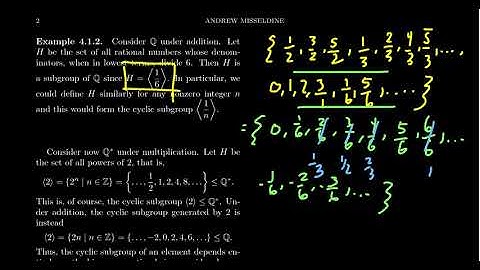 2
ANDREW MISSELDINE
Example 4.1.2. Consider ℚ under addition. Let
H be the set of all rational numbers whose denom-
inators, when in lowest terms, divide 6. Then H is
a subgroup of ℚ since H = ⟨1/6⟩. In particular, we
could define H similarly for any nonzero integer n
and this would form the cyclic subgroup ⟨1/n⟩.
Consider now ℚ* under multiplication. Let H be
the set of all powers of 2, that is,
⟨2⟩ = {2ⁿ | n ∈ ℤ} = {..., 1/2, 1, 2, 4, 8, ...} ≤ ℚ*.
This is, of course, the cyclic subgroup ⟨2⟩ ≤ ℚ*. Un-
der addition, the cyclic subgroup generated by 2 is
instead
⟨2⟩ = {2n | n ∈ ℤ} = {..., −2, 0, 2, 4, 6, ...} ≤ ℚ.
Thus, the cyclic subgroup of an element depends en-
{ 1/2, 3/2, 5/2, 1/3, 2/3, 4/3, 5/3,
0, 1, 2, 3/1, 1/6, 5/6, ... }
= { 0, 1/6, 2/6, 3/6, 4/6, 5/6, 6/6, ...
1/3 1/2 2/3 1
-1/6, -2/6, -3/6, ... }